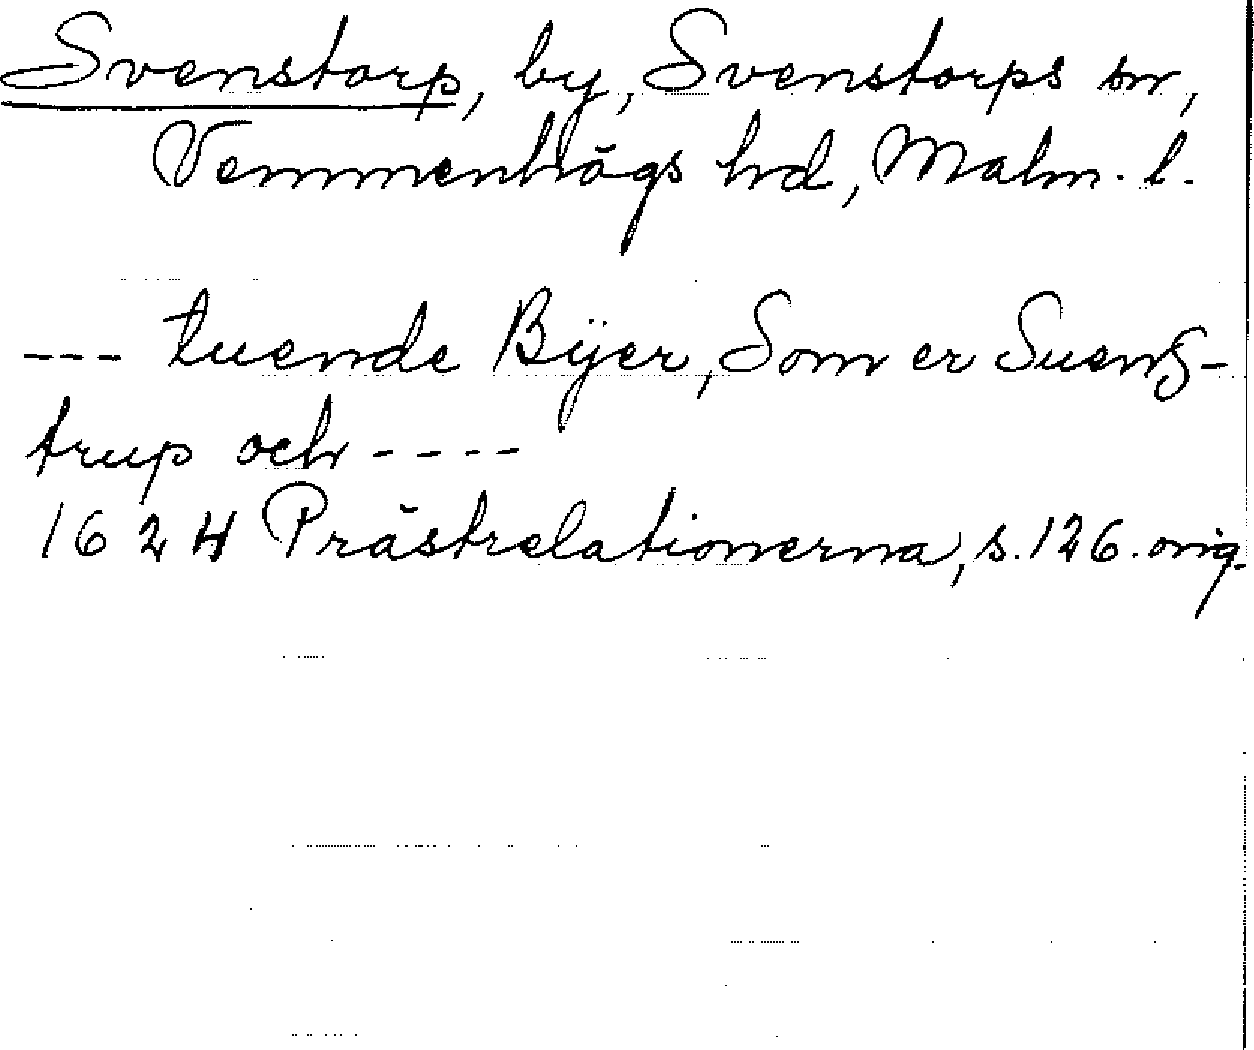 Svenstorp, by, Svenstorps sn,
Vemmenhögs hd, Malm. l.
--- tuende Bÿer, Som er Suenß-
trup och ----
1624 Prästrelationerna, s. 126. orig.